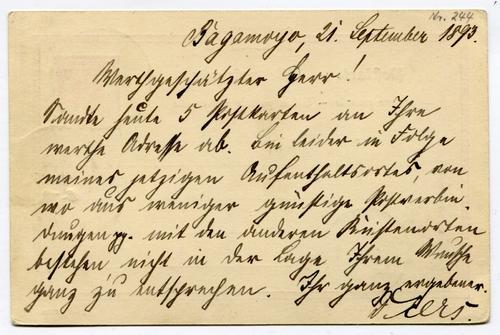 Nr. 244
Bagamoyo, 21. September 1893.
Werthgeschätzter Herr!
Sandte heute 5 Postkarten an Ihre
werthe Adresse ab. Bin leider in Folge
meines jetzigen Aufenthaltsortes, von
wo aus weniger günstige Postverbin
dungen pp. mit den anderen Küstenorten
bestehen nicht in der Lage Ihrem Wunsche
ganz zu entsprechen. Ihr ganz ergebener